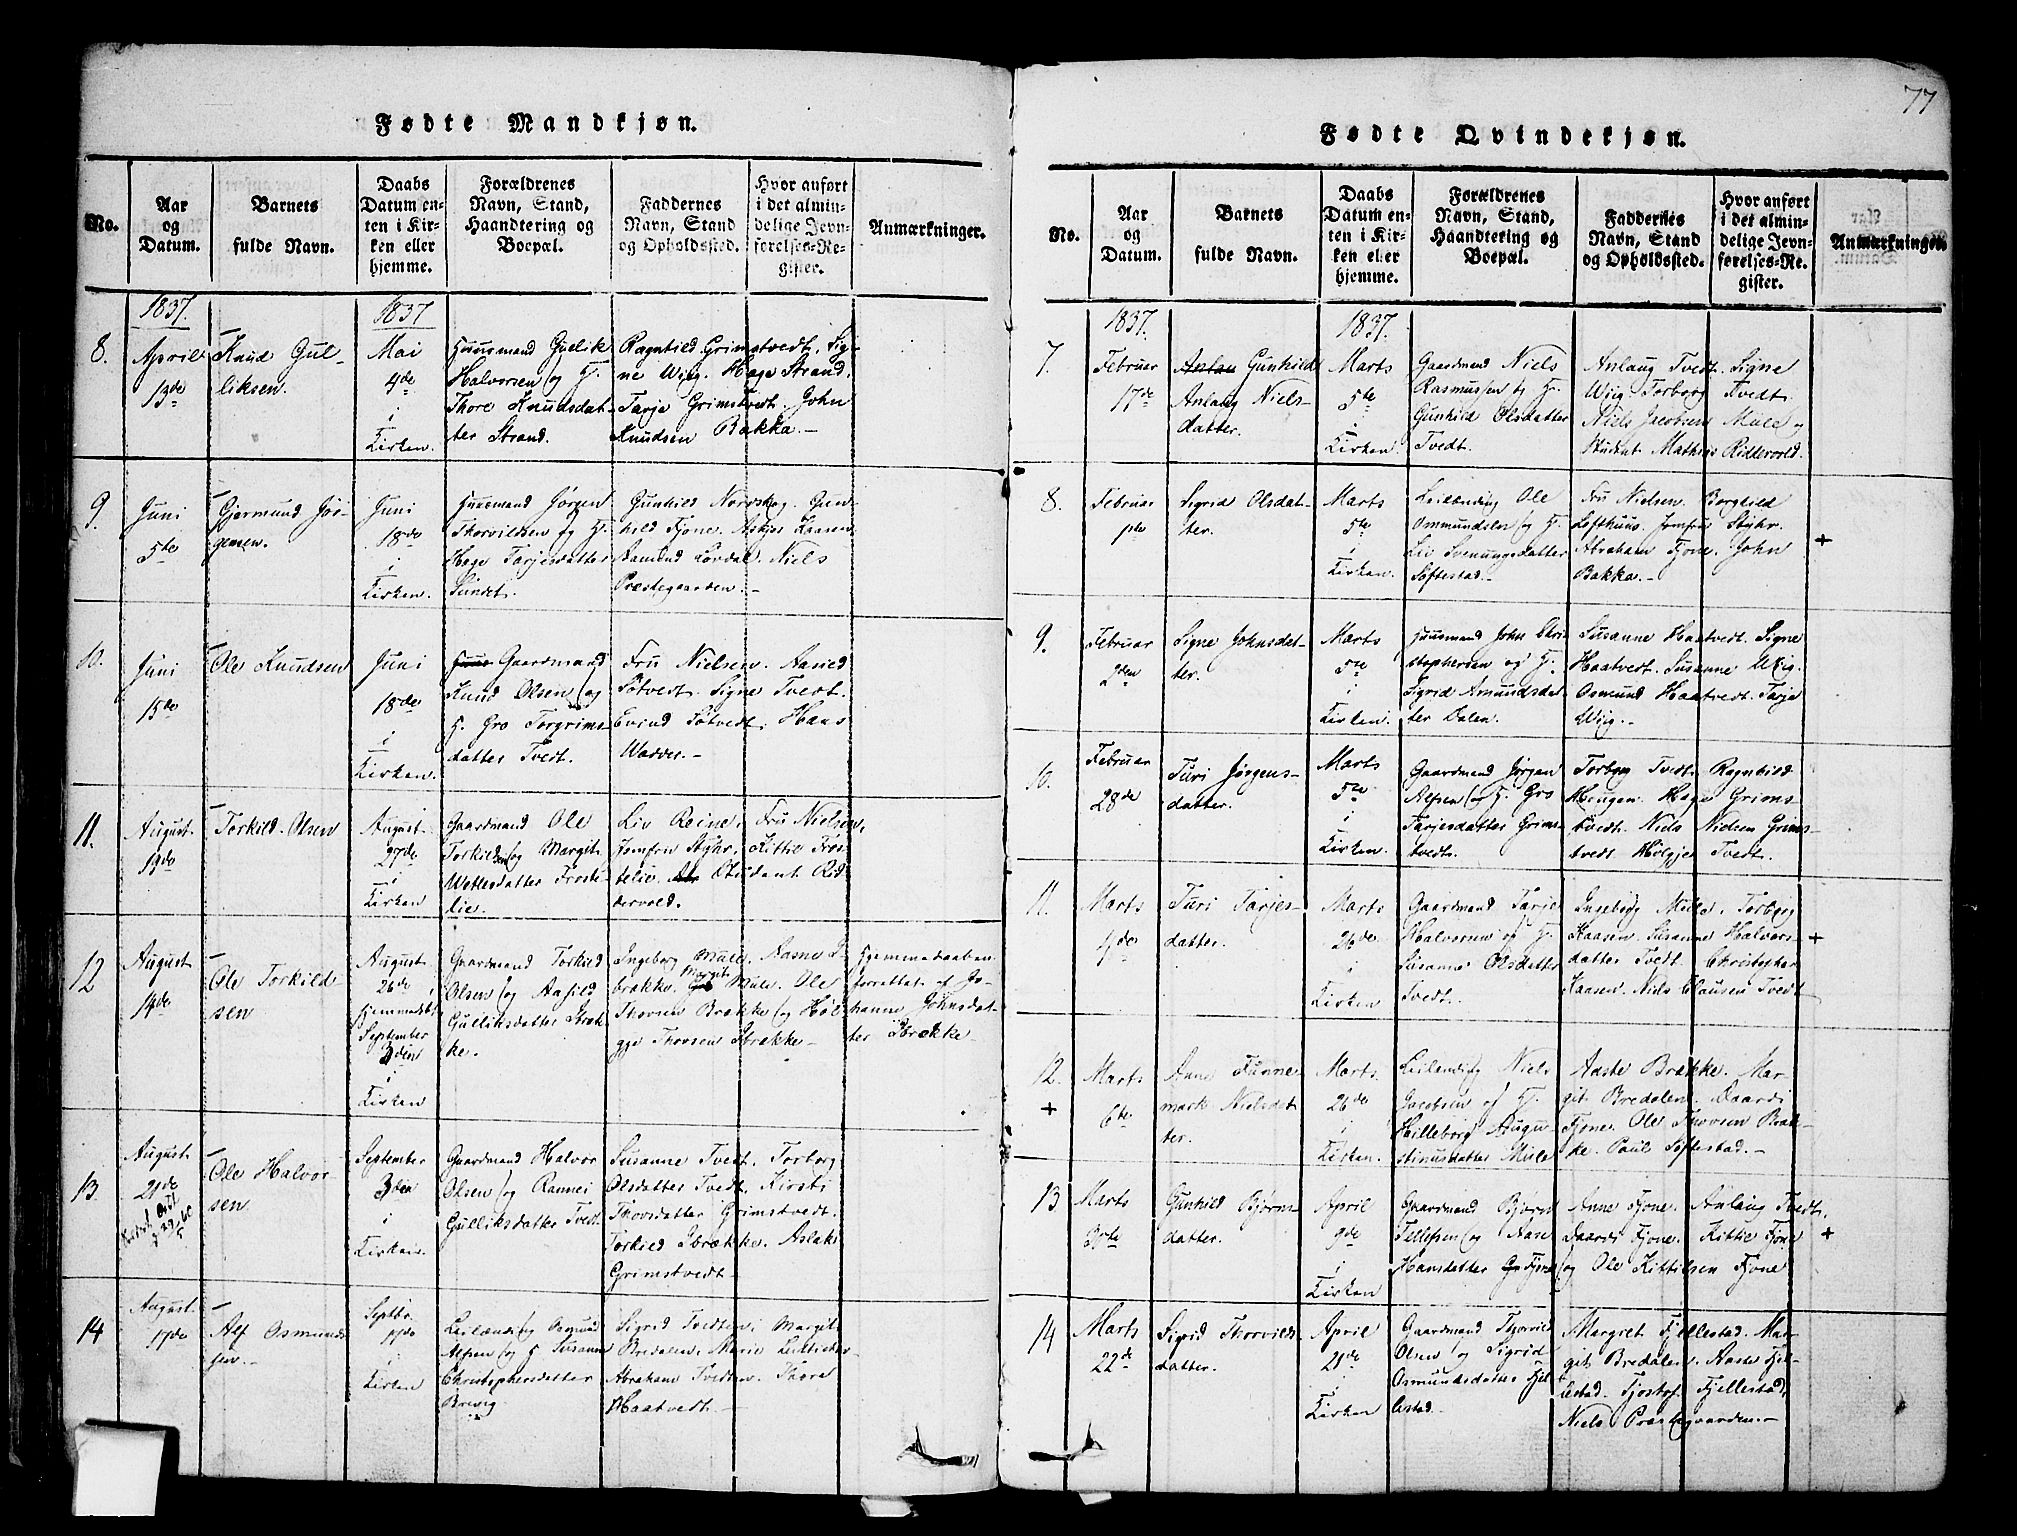 77
Fødte Mandkjøn.
No.
Aar
og
Datum.
Barnets
fulde Navn.
Daabs
Datum en-
ten i Kir-
ken eller
hjemme.
Forældrenes
Navn, Stand,
Haandtering og
Boepæl.
Faddernes
Navn, Stand
og Opholdssted.
Hvor anført
i det almin-
delige Jevn-
førelses-Re-
gister.
Anmærkninger.
1837.
8.
April
13de
Knud Gul-
liksen.
1837
Mai
4de
i
Kirken.
Huusmand Gullik
Halvorsen og H.
Thore Knudsdat-
ter Strand.
Ragnhild Grimstvedt. Sig-
ne Wiig. Hage Strand.
Tarje Grimstvedt. John
Knudsen Bakka.-
9.
Juni
5te
Gjermund Jør-
gensen.
Juni
18de
i
Kirken.
Huusmand Jørgen
Thorvildsen og H.
Hage Tarjesdatter
Sundet.
Gunhild Nordskog. Gun-
hild Fjone. Kaasen.
Aamund Lördal. Niels
Præstegaarden.-
10.
Juni
15de
Ole Knudsen
Juni
18de
i
Kirken.
Huus Gaardmand
Knud Olsen og
H. Gro Torgrims-
datter Tvedt.
Fru Nielsen. Aasild
Sötvedt. Signe Tvedt.
Evind Sötvedt. Hans
11.
August
19de
Torkild Olsen
August
27de
i
Kirken
Gaardmand Ole
Torkildsen og Margit
Wetlesdatter Frost-
lie.
Liv Reine. Fru Nielsen.
Jomfru Styhr. Kittil Fros-
telie. Student Rid-
dervold.
12
August
14de
Ole Torkild-
sen
August
26de
hjemmedøbt
September
3den
i
Kirken
Gaardmand Torkild
Olsen og Aasild
Gulliksdatter Bræk-
ke.
Ingeborg Mule. Aasne I-
brække. Margit Mule. Ole
Thovsen Brække og Høl-
gje Thovsen Ibrække-
Hjemmedaaben
forrettet af Jo-
hanne Johnsdat-
ter Ibrække-
13.
August
21de
Ole Halvor
sen
September
3den
i
Kirken.
Gaardmand Halvor
Olsen og Rannei
Gulliksdatter Tvedt
Susanne Tvedt. Torborg
Olsdatter Tvedt. Kirsti
Thovsdatter Grimstvedt.
Torkild Ibrække. Aslak
Grimstvedt-
14
August
17de
Alf Osmund-
sen.-
Septbr.
17de
i
Kirken
Leilænding Osmund
Alfsen og H. Susanne
Christophersdatter
Brevig.
Sigrid Tvedten. Margit
Bredalen. Marie
Abraham Tvedten. Thore
Haatvedt.-
Fødte Qvindekjøn.
No.
Aar
og
Datum.
Barnets
fulde Navn.
Daabs
Datum en-
ten i Kir-
ken eller
hjemme.
Forældrenes
Navn, Stand,
Haandtering og
Boepæl.
Faddernes
Navn, Stand
og Opholdssted.
Hvor anført
i det almin-
delige Jevn-
førelses-Re-
gister.
Anmærkninger.
1837.
7.
Februar
17de
Anlau Gunhild
Anlaug Niels-
datter.
1837.
Marts
5te
i
Kirken.
Gaardmand Niels
Rasmussen og H.
Gunhild Olsdatter
Tvedt.
Anlaug Tvedt. Signe
Wiig Torborg Tvedt.
Niels Jacobsen Mule og
Student Mathias Riddervold.
8.
Februar
1ste
Sigrid Olsdat-
ter.
Marts
5te
i
Kirken.
Leilænding Ole
Ommundsen og H.
Liv Svenungsdatter
Söftestad.-
Fru Nielsen. Borghild
Lofthuus. Jomfru Styhr.
Abraham Fjone. John
Bakka.-
+
9.
Februar
2den
Signe Johnsdat-
ter.
Marts
5te
i
Kirken.
Huusmand John Chri-
stophersen og H.
Sigrid Amundsdat-
ter Dalen.
Susanne Haatvedt. Signe
Haatvedt. Susanne Wiig.
Osmund Haatvedt. Tarje
Wiig.-
10.
Februar
28de
Turi Jørgens-
datter.
Marts
5te
i
Kirken.
Gaardmand Jørgen
Alfsen og H. Gro
Tarjesdatter Grims-
tvedt.
Torborg Tvedt. Ragnhild
Haugen. Hage Grims-
tvedt. Niels Nielsen Grims-
tvedt. Hölgje Tvedt.
11.
Marts
4de
Turi Tarjes-
datter.
Marts
26de
i
Kirken
Gaardmand Tarje
Halvorsen og H.
Susanne Olsdatter
Tvedt.
Ingeborg Mule. Torborg
Kaasen. Susanne Halvors-
datter Tvedt. Christopher
Kaasen. Niels Clausen Tvedt
+
12.
+
Marts
6te
Anne Finne-
mark Nielsdat
ter.
Marts.
26de
i
Kirken.
Leilænding Niels
Jacobsen og H.
Hilleborg Augu-
stinusdatter Mule
Aaste Brække. Mar-
git Bredalen. Daardi
Fjone. Ole Thovsen Bræk-
ke. Paul Söftestad.-
13
Marts
3die
Gunhild Bjørns-
datter.
April
9de
i
Kirken
Gaardmand Bjørn
Tellefsen og Aase
Hansdatter Fjone
Anne Fjone. Anlaug Tvedt.
Daardi Fjone. Kittil Fjone
og Ole Kittilsen Fjone
+
14
Marts
22de
Sigrid Thorvilds-
datter.
April
21de
i
Kirken
Gaardmand Thorvild
Olsen og Sigrid
Osmundsdatter Fjel-
lestad.-
Margret Fjellestad. Mar-
git Bredalen. Aaste Fjel-
lestad. Tjostof Fjellestad.
Niels Præstegaarden.-